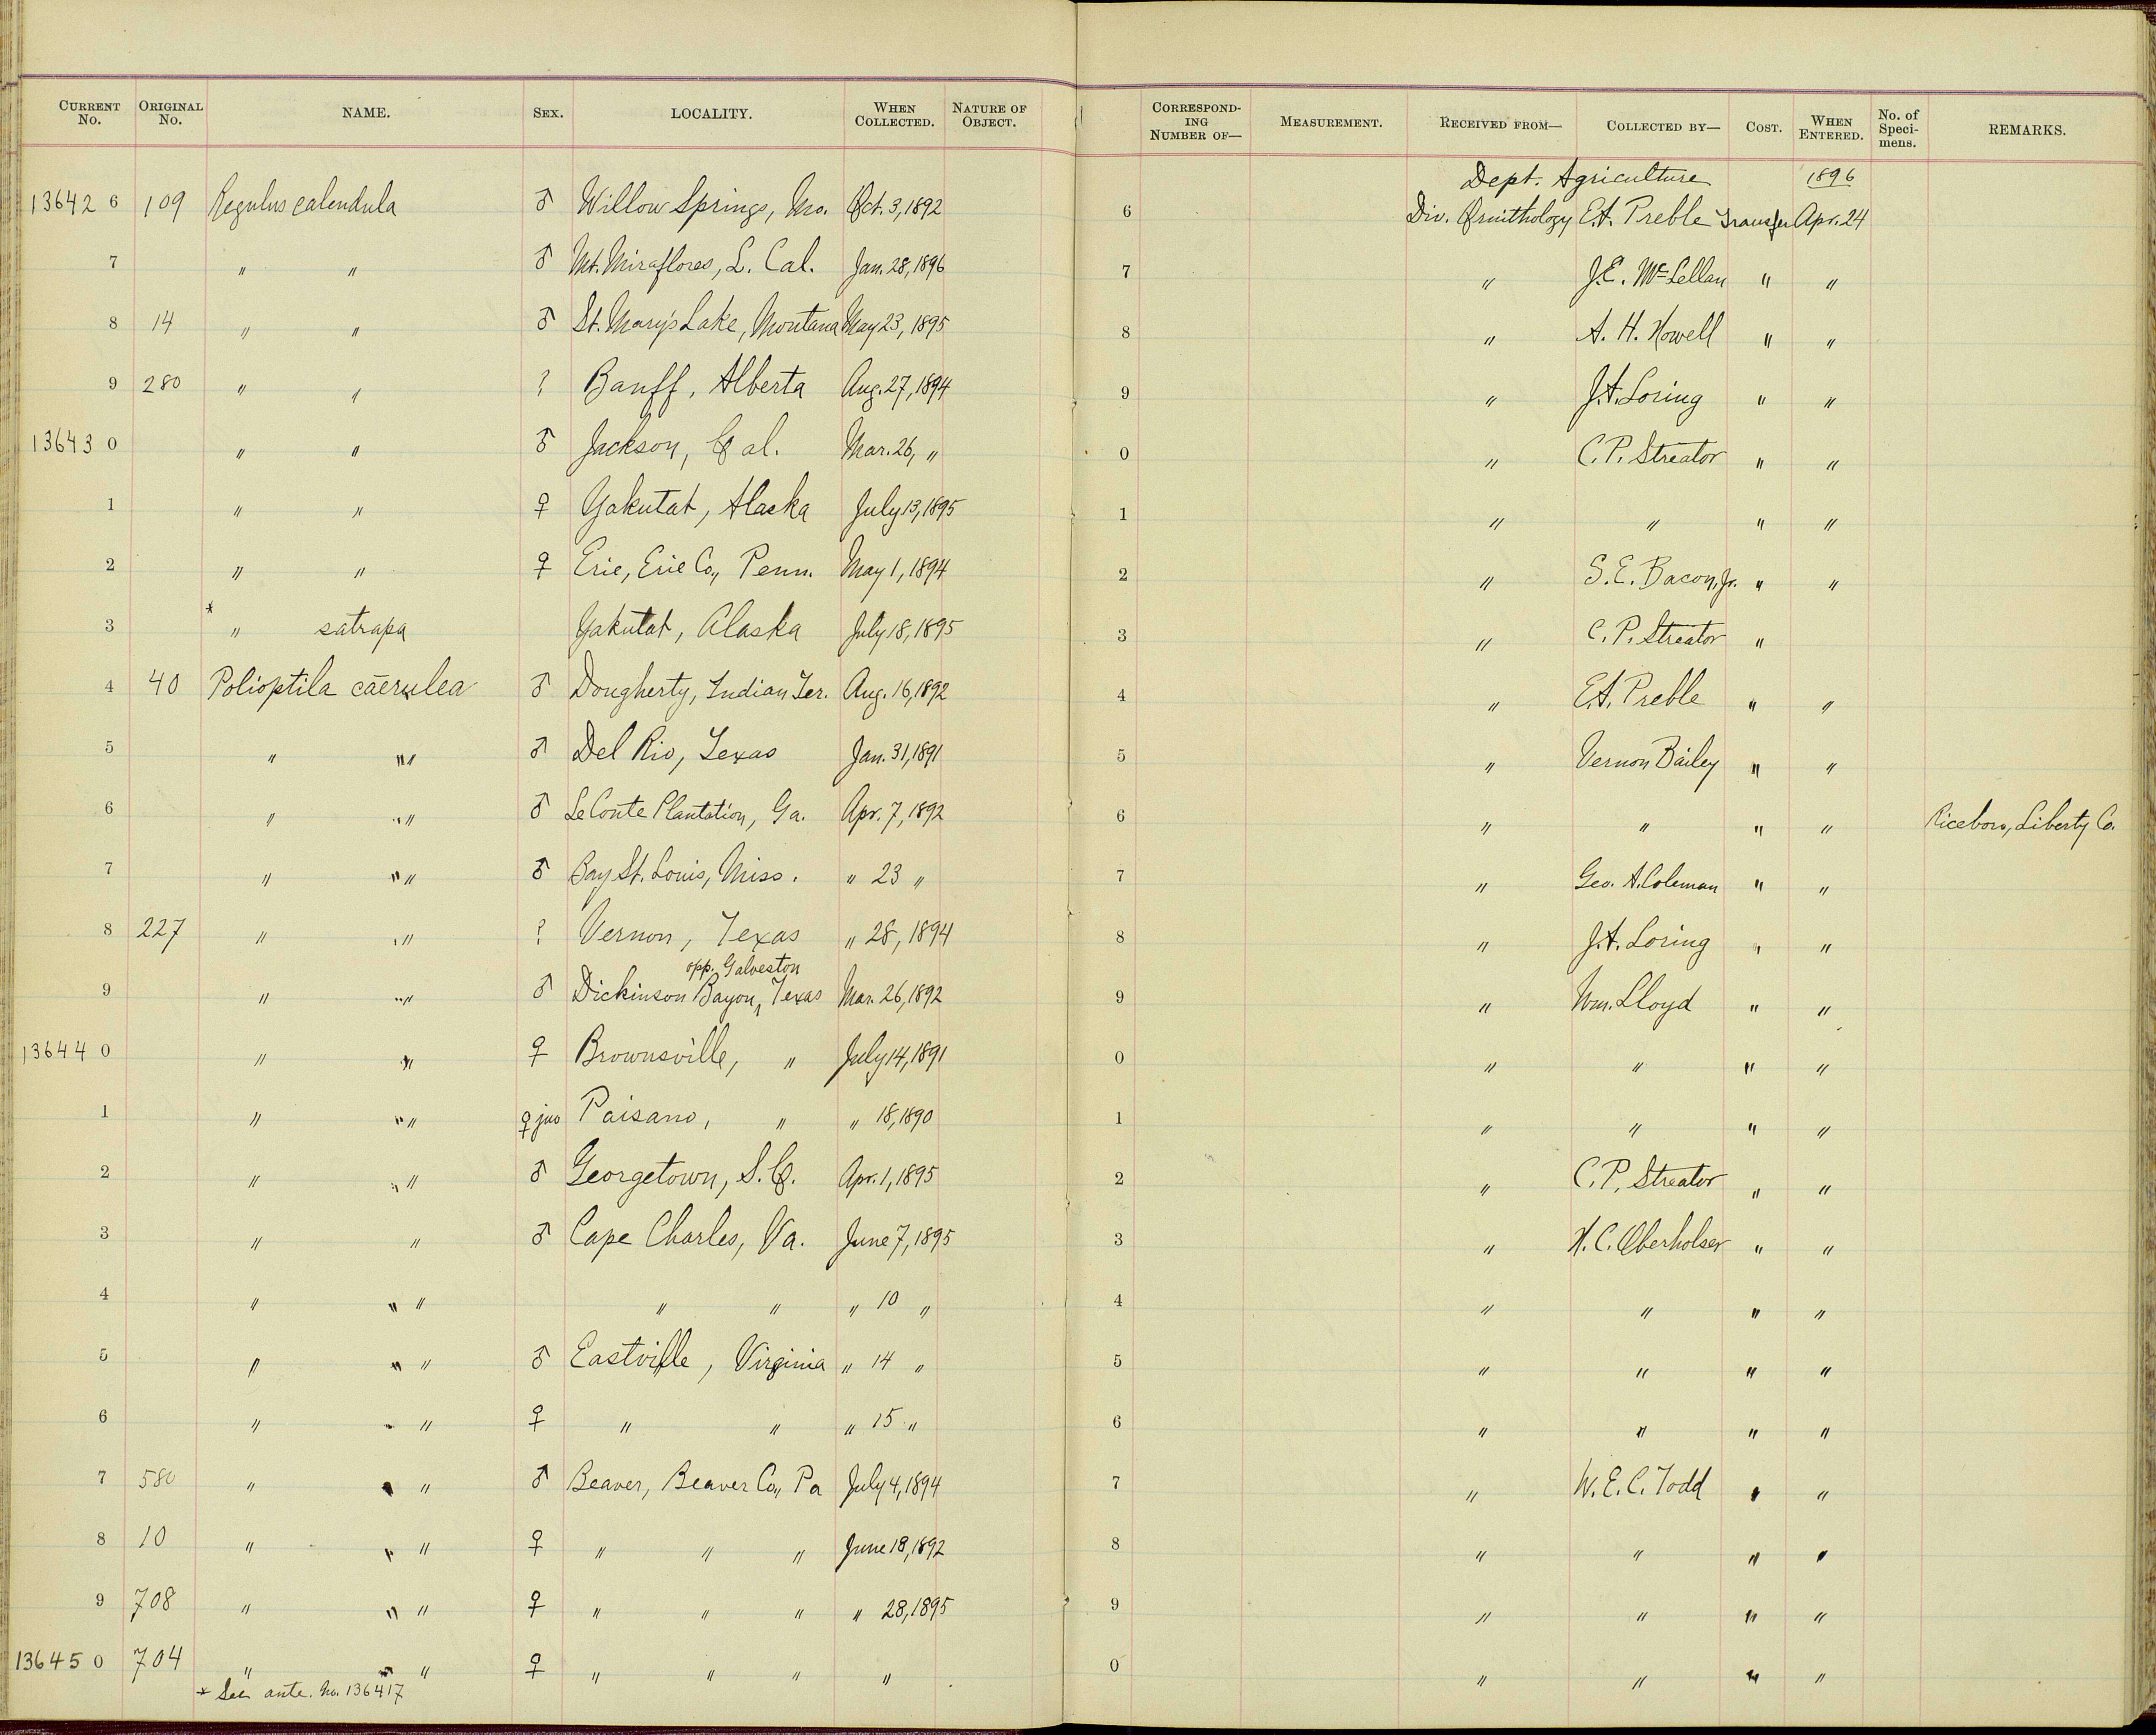 CURRENT No. ORIGINAL No. NAME. SEX. LOCALITY. WHEN COLLECTED. NATURE OF OBJECT. CORRESPONDING NUMBER OF— MEASUREMENT. RECEIVED FROM— COLLECTED BY— COST. WHEN ENTERED. No. of Specimens. REMARKS.
Dept. Agriculture 1896
13642 6 109 Regulus calendula ♂ Willow Springs, Mo. Oct. 3, 1892 6 Div. Ornithology E.A. Preble Transfer Apr. 24
7 " " ♂ Mt. Miraflores, L. Cal. Jan. 28, 1896 7 " J.E. McLellan " "
8 14 " " ♂ St. Mary's Lake, Montana May 23, 1895 8 " A. H. Howell " "
9 280 " " ? Banff, Alberta Aug. 27, 1894 9 " J.A. Loring " "
13643 0 " " ♂ Jackson, Cal. Mar. 26, " 0 " C.P. Streator " "
1 " " ♀ Yakutat, Alaska July 13, 1895 1 " " " "
2 " " ♀ Erie, Erie Co., Penn. May 1, 1894 2 " S.E. Bacon, Jr. " "
3 * " satrapa Yakutat, Alaska July 18, 1895 3 " C.P. Streator "
4 40 Polioptila caerulea ♂ Dougherty, Indian Ter. Aug. 16, 1892 4 " E.A. Preble " "
5 " " ♂ Del Rio, Texas Jan. 31, 1891 5 " Vernon Bailey " "
6 " " ♂ LeConte Plantation, Ga. Apr. 7, 1892 6 " " " " Riceboro, Liberty Co.
7 " " ♂ Bay St. Louis, Miss. " 23 " 7 " Geo. A. Coleman " "
8 227 " " ? Vernon, Texas " 28, 1894 8 " J.A. Loring " "
opp. Galveston
9 " " ♂ Dickinson Bayou, Texas Mar. 26, 1892 9 " Wm. Lloyd " "
13644 0 " " ♀ Brownsville, " July 14, 1891 0 " " " "
1 " " ♀ juv Paisano, " " 18, 1890 1 " " " "
2 " " ♂ Georgetown, S.C. Apr. 1, 1895 2 " C.P. Streator " "
3 " " ♂ Cape Charles, Va. June 7, 1895 3 " H.C. Oberholser " "
4 " " " " " 10 " 4 " " " "
5 " " ♂ Eastville, Virginia " 14 " 5 " " " "
6 " " ♀ " " " 15 " 6 " " " "
7 580 " " ♂ Beaver, Beaver Co., Pa July 4, 1894 7 " W.E.C. Todd " "
8 10 " " ♀ " " " June 18, 1892 8 " " " "
9 708 " " ♀ " " " " 28, 1895 9 " " " "
13645 0 704 " " ♀ " " " " 0 " " " "
* See ante. No. 136417